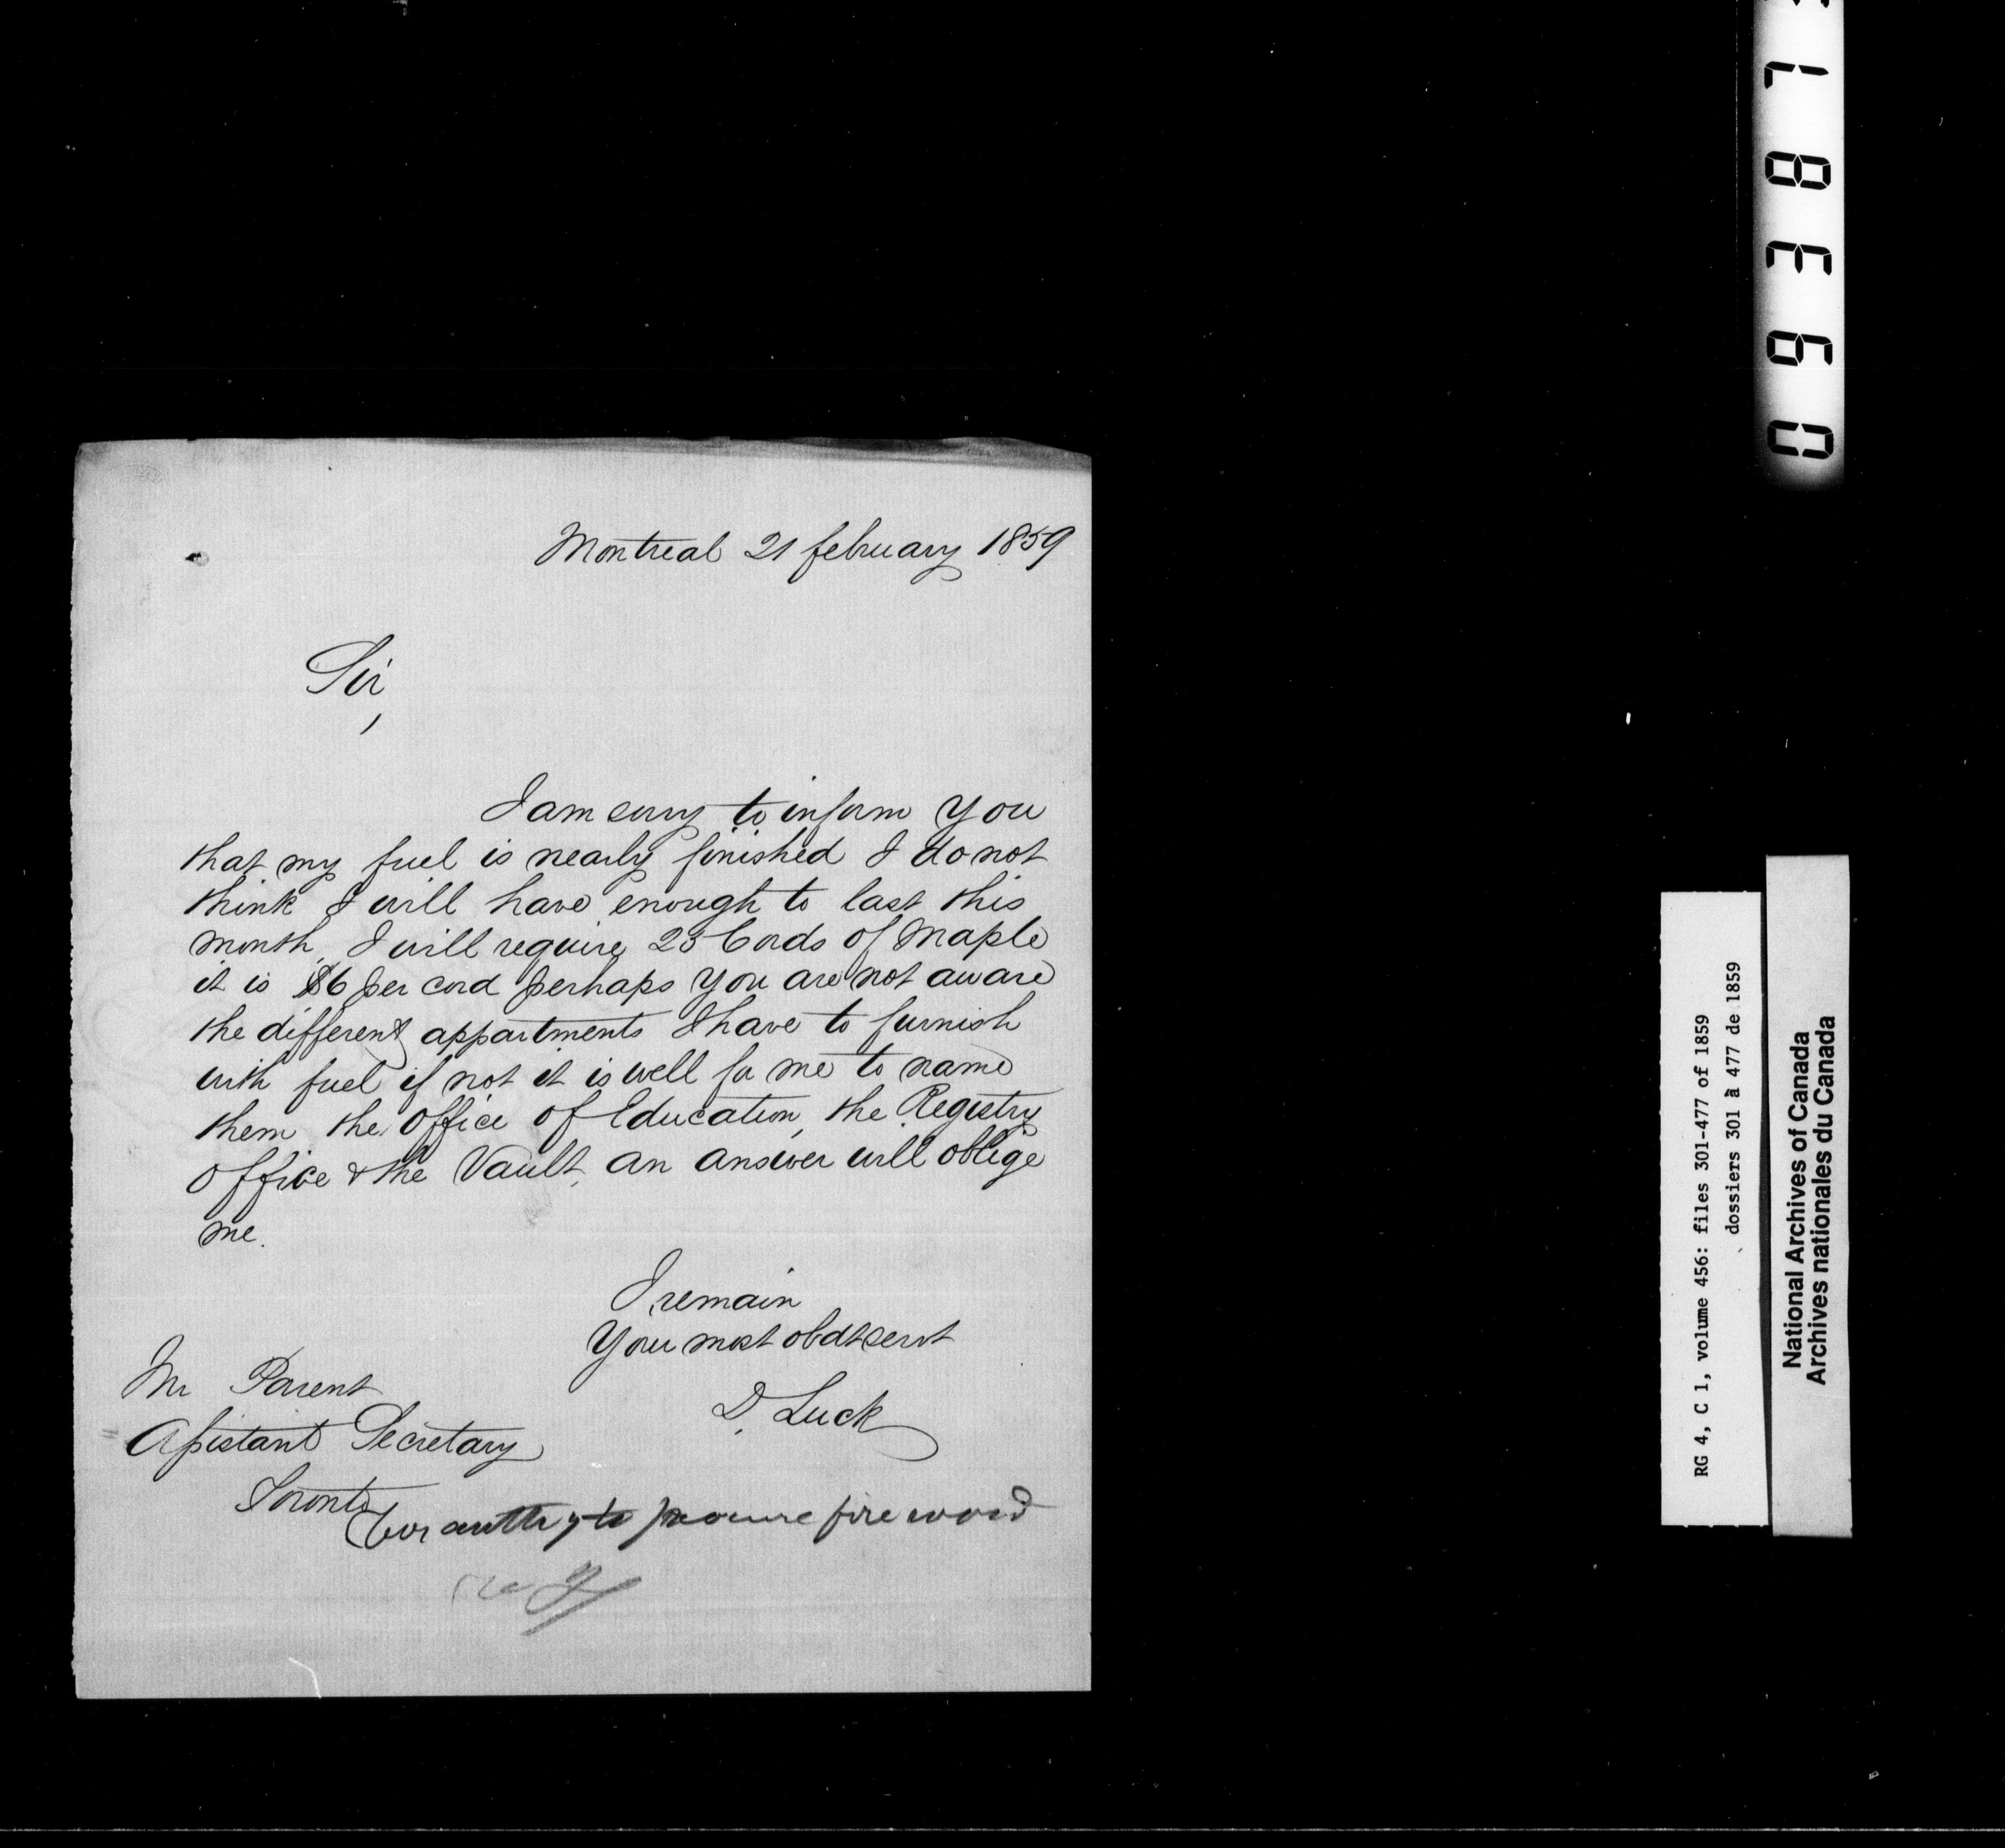 Montreal 21 february 1859
Sir,
I am sorry to inform you
that my fuel is nearly finished I do not
think I will have enough to last this
month, I will require 25 Cords of Maple
it is $6 per cord perhaps you are not aware
the different appartments I have to furnish
with fuel if not it is well for me to name
them the Office of Education, the Registry
Office & the Vault, an answer will oblige
me.
I remain
Your most obdt servt
D. Luck
Mr Parent
Assistant Secretary
Toronto
For authy to procure fire wood
RG 4, C 1, volume 456: files 301-477 of 1859
dossiers 301 à 477 de 1859
National Archives of Canada
Archives nationales du Canada